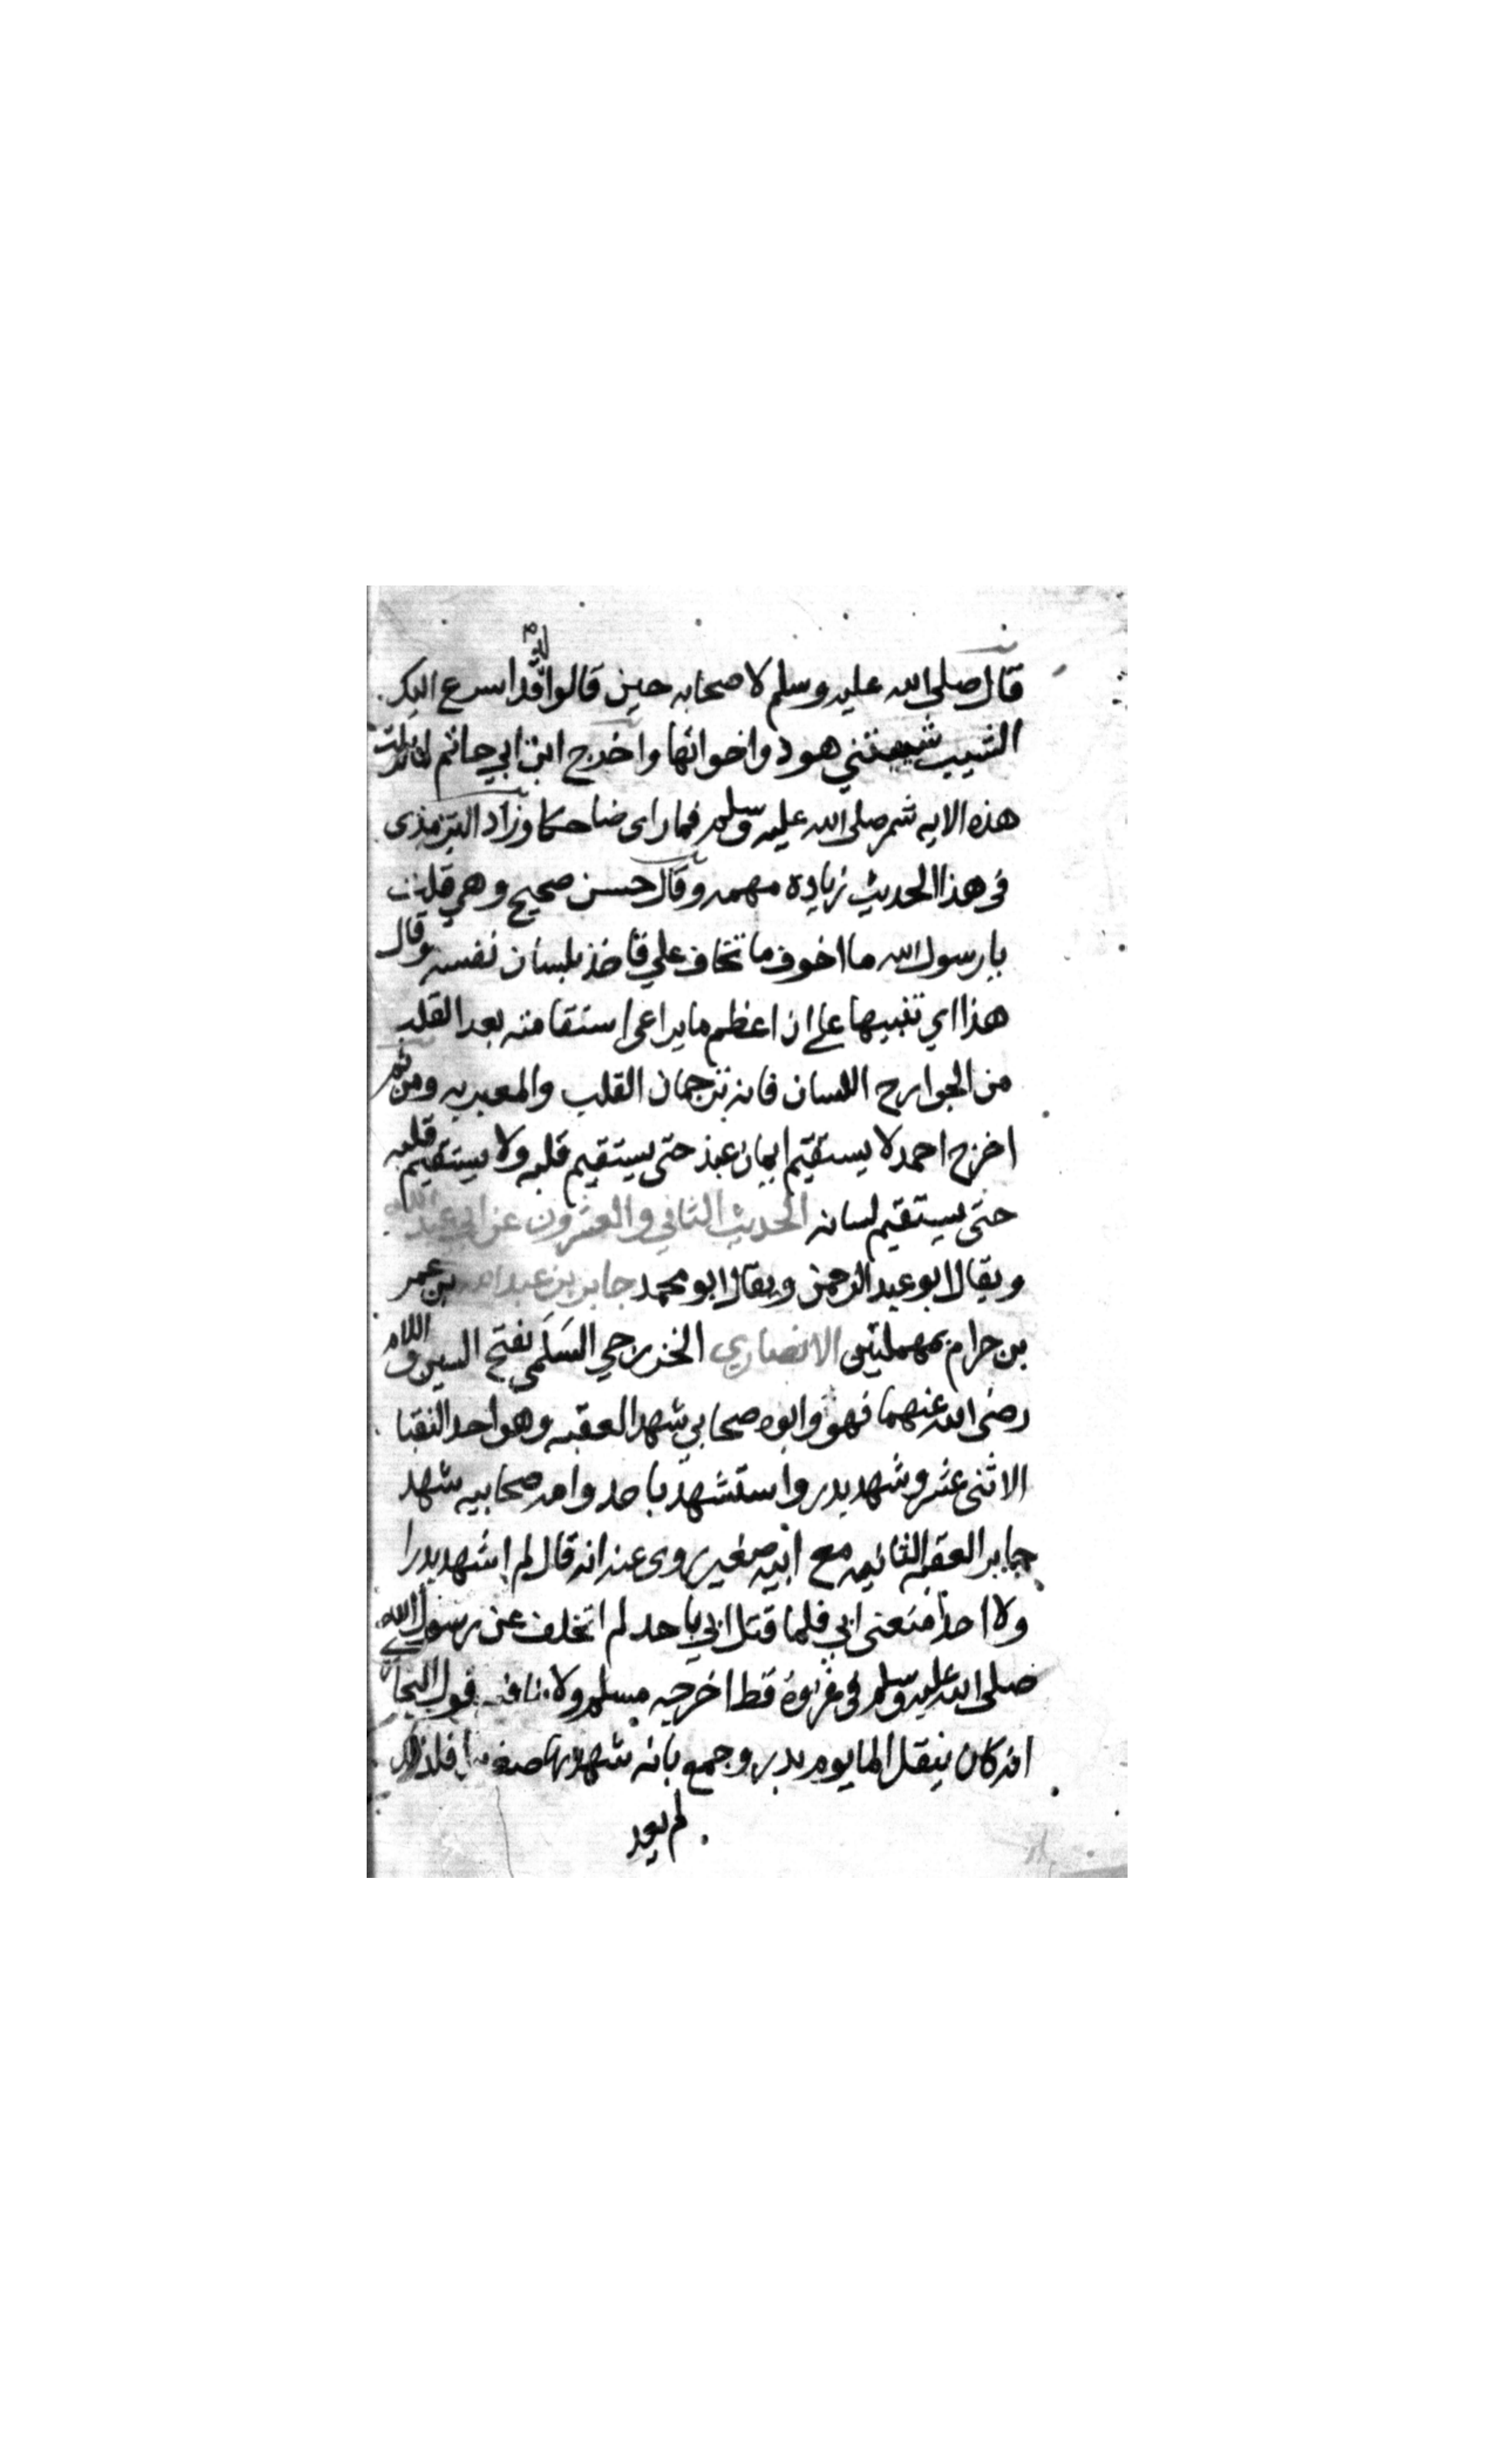 قال صلى الله عليه وسلم لاصحابه حين قالوا قد اسرع اليك
الشيب شيبتني هود واخواتها واخرج ابن ابي حاتم لما نزلت
هذه الايه شمر صلى الله عليه وسلم فما راى ضاحكا وزاد الترمذى
فى هذا الحديث زياده مهمه وقال حسن صحيح وهي قلت
يا رسول الله ما اخوف ما تخاف علي فاخذ بلسان نفسه وقال
هذا اي تنبيها على ان اعظم ما يراعى استقامته بعد القلب
من الجوارح اللسان فانه ترجمان القلب والمعبر به ومن ثم
اخرج احمد لا يستقيم ايمان عبد حتى يستقيم قلبه ولا يستقيم قلبه
حتى يستقيم لسانه الحديث الثاني والعشرون عن ابي عبد الله
ويقال ابو عبد الرحمن ويقال ابو محمد جابر بن عبد الله بن عمر
بن حرام بمهملتين الانصاري الخزرجي السَلَمي بفتح السين واللام
رضى الله عنهما فهو وابوه صحابي شهد العقبه وهو احد النقبا
الاثنى عشر وشهد بدر واستشهد باحد وامه صحابيه شهد
جابر العقبه الثانيه مع ابيه صغير روى عنه انه قال لم اشهد بدرا
ولا احدا منعنى ابي فلما قتل ابي باحد لم اتخلف عن رسول الله
صلى الله عليه وسلم فى غزوة قط اخرجه مسلم ولا ينافيه قول البخارى
انه كان ينقل الما يوم بدر وجمع بانه شهدها صغيرا فلذلك
لم يعد